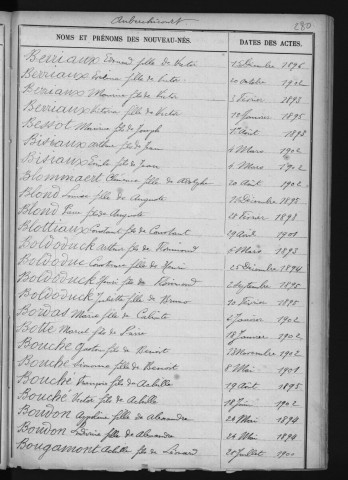 Auberchicourt
280
NOMS ET PRÉNOMS DES NOUVEAU-NÉS. DATES DES ACTES.
Berriaux fille de Victor Décembre 1896
Berriaux fils de Victor 20 octobre 1902
Berriaux Maurice fils de Victor 3 Février 1893
Berriaux Victoria fille de Victor Janvier 1895
Bessot Maurice fils de Joseph Août 1895
Bisiaux Arthur fils de Jean 4 Mars 1902
Bisiaux Emile fils de Jean 4 Mars 1902
Blommaert Clémence fille de Adolphe 20 Août 1902
Blond Louise fille de Auguste Décembre 1895
Blond fils de Auguste 20 Février 1898
Blottiaux Constant fils de Constant 29 Août 1901
Boldoduck Arthur fils de Raimond 6 Mars 1893
Boldoduc Constance fille de Henri 25 Décembre 1894
Boldoduck Henri fils de Raimond 2 Septembre 1895
Boldoduck Juliette fille de Bruno 10 Février 1895
Bordas Marie fille de 5 Janvier 1902
Botte Marcel fils de Pierre 18 Janvier 1902
Bouche Gaston fils de Benoit 28 Novembre 1902
Bouche Simonne fille de Benoit 8 Mai 1901
Bouché François fils de Achille 19 Août 1895
Bouché Victor fils de Achille 18 Juin 1902
Boudon Angéline fille de Alexandre 24 Mai 1894
Boudon Ludivine fille de Alexandre 24 Mai 1894
Bougamont Achille fils de Léonard 20 Juillet 1900